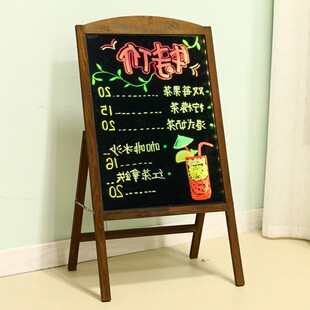 特价
双莓果茶 ........ 20
柠檬茶 ........ 15
港式奶茶 ........ 20
咖啡冰沙
........ 16
红茶拿铁
........ 20